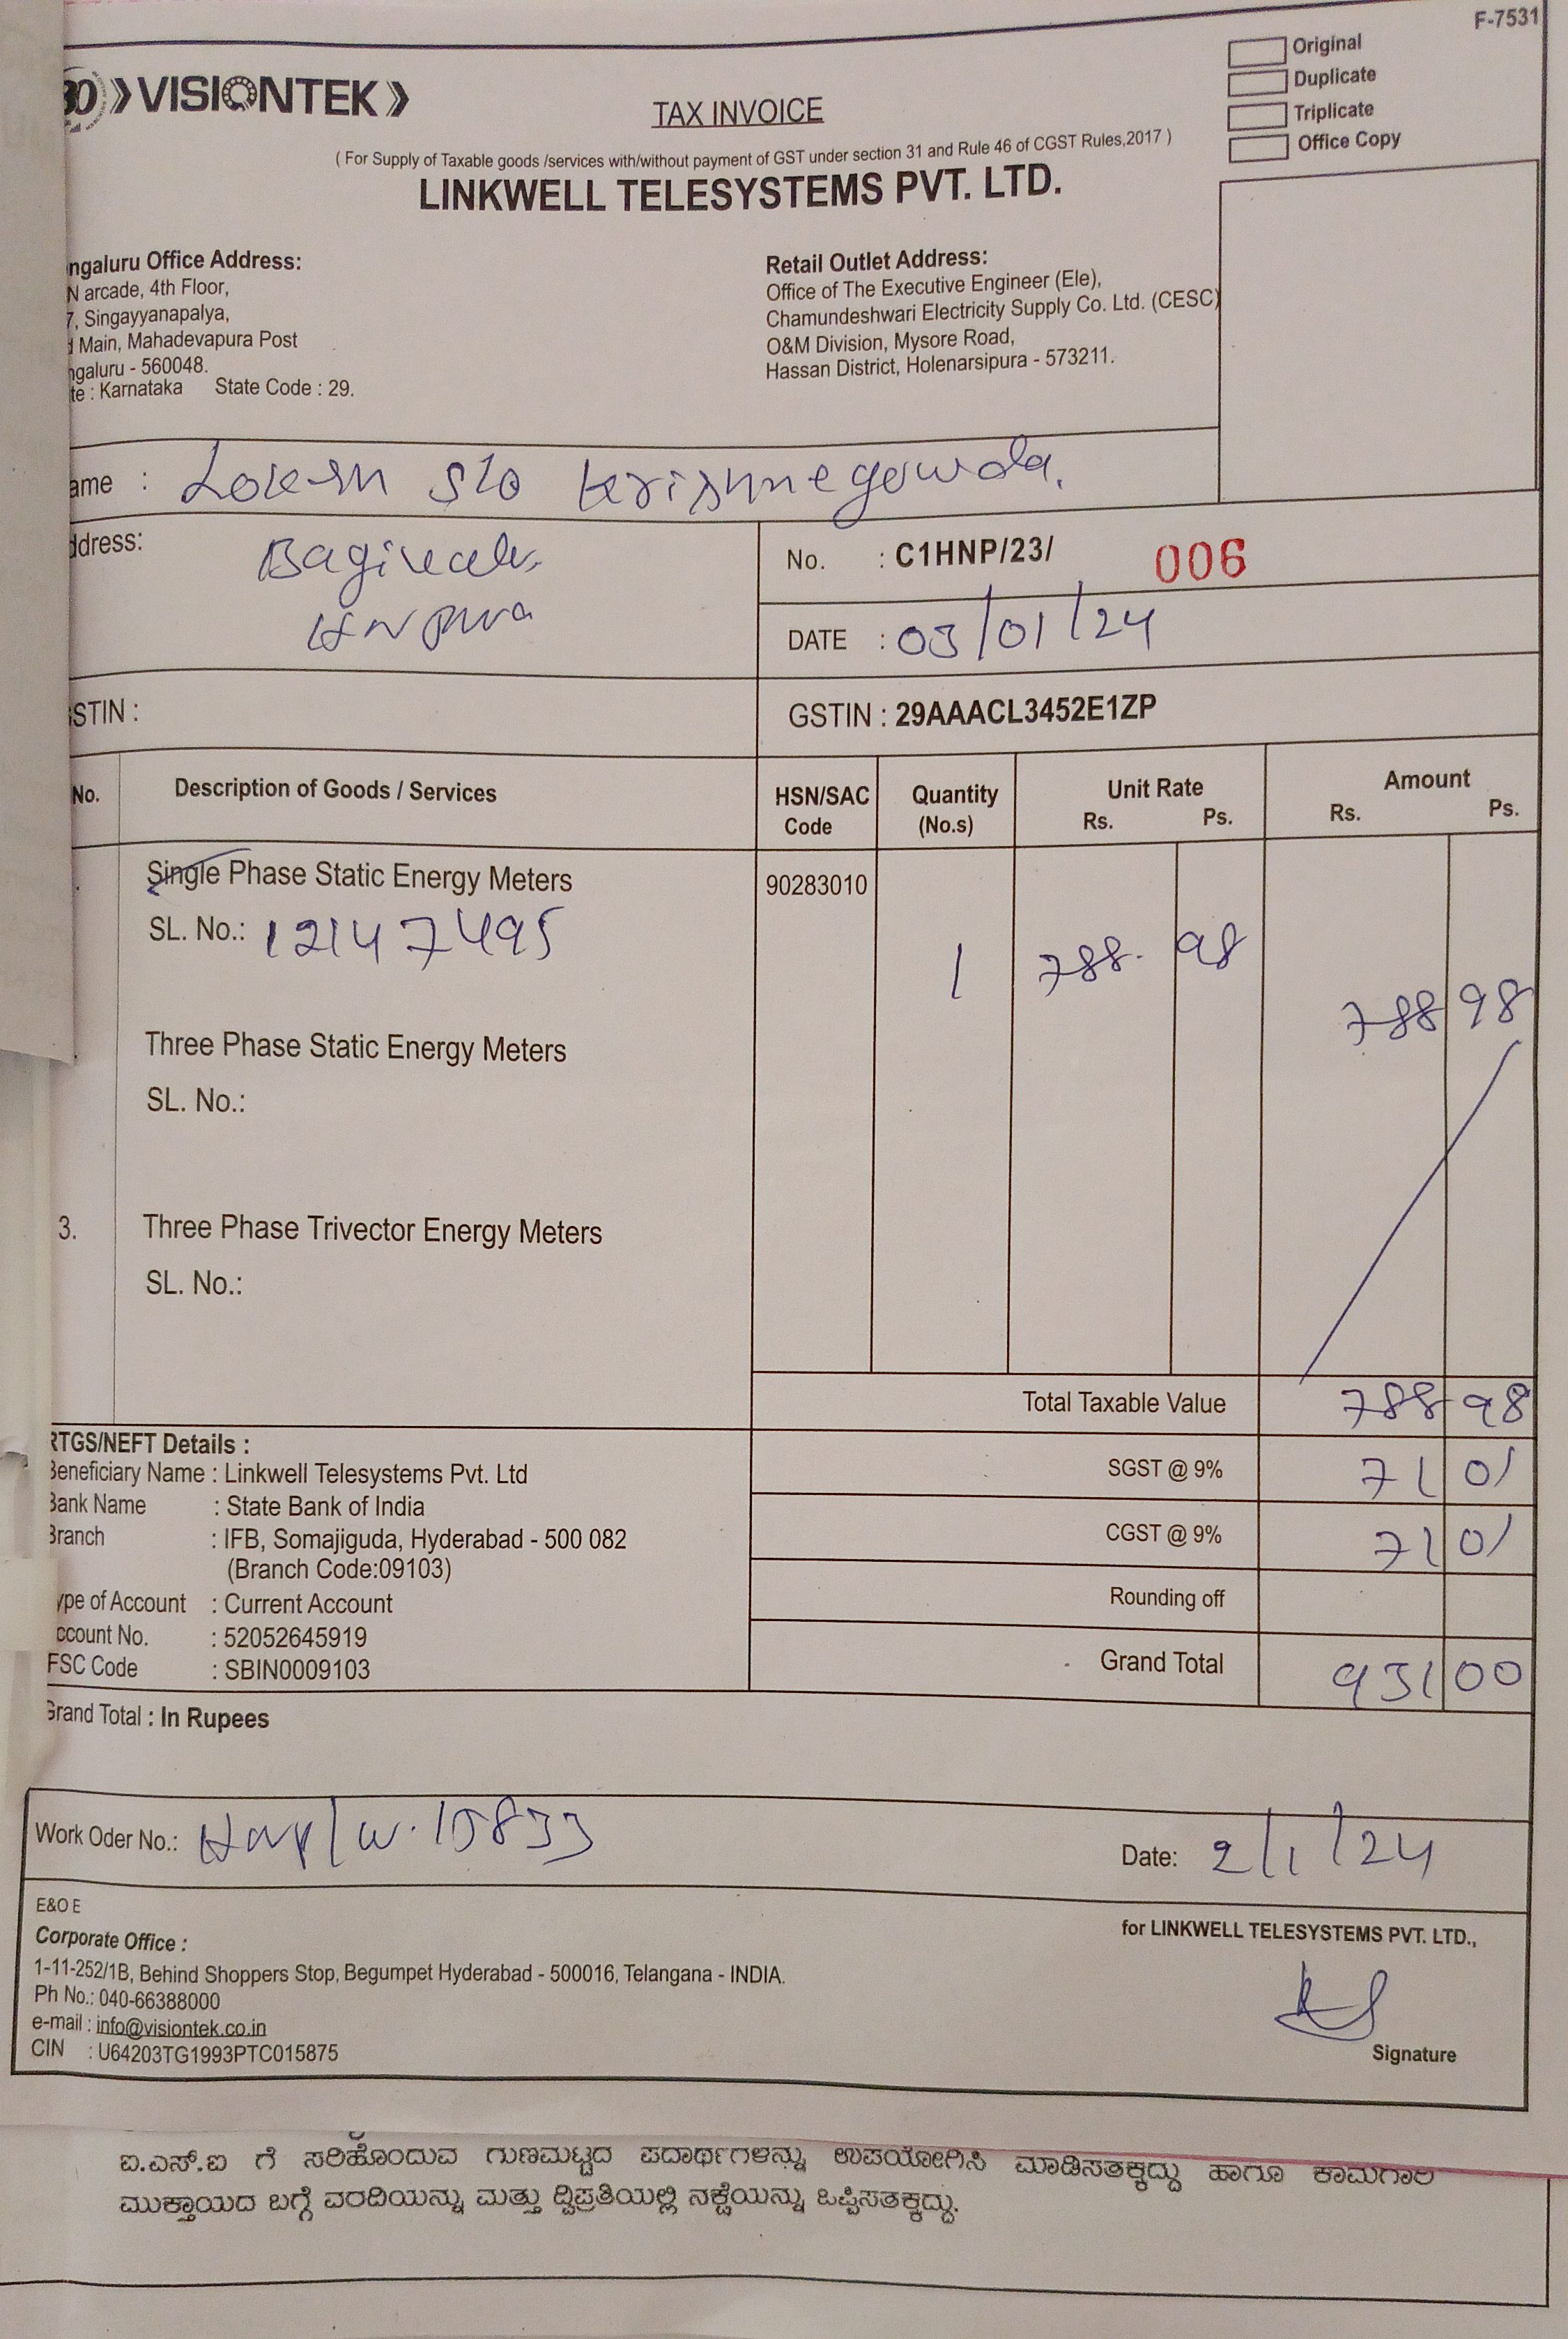 F-7531
Original
Duplicate
Triplicate
Office Copy
VISIONTEK
TAX INVOICE
( For Supply of Taxable goods /services with/without payment of GST under section 31 and Rule 46 of CGST Rules,2017 )
LINKWELL TELESYSTEMS PVT. LTD.
ngaluru Office Address:
N arcade, 4th Floor,
7, Singayyanapalya,
Main, Mahadevapura Post
ngaluru - 560048.
te : Karnataka State Code : 29.
Retail Outlet Address:
Office of The Executive Engineer (Ele),
Chamundeshwari Electricity Supply Co. Ltd. (CESC)
O&M Division, Mysore Road,
Hassan District, Holenarsipura - 573211.
ame : Lokesh S/o Krishnegowda.
ddress:
HN Pura
No. : C1HNP/23/ 006
DATE : 03/01/24
STIN :
GSTIN : 29AAACL3452E1ZP
No. Description of Goods / Services HSN/SAC Code Quantity (No.s) Unit Rate Rs. Ps. Amount Rs. Ps.
Single Phase Static Energy Meters 90283010
SL. No.: 12147495 1 788. 98 788 98
Three Phase Static Energy Meters
SL. No.:
3. Three Phase Trivector Energy Meters
SL. No.:
Total Taxable Value 788 98
SGST @ 9% 71 01
CGST @ 9% 71 01
Rounding off
Grand Total 931 00
RTGS/NEFT Details :
Beneficiary Name : Linkwell Telesystems Pvt. Ltd
Bank Name : State Bank of India
Branch : IFB, Somajiguda, Hyderabad - 500 082
(Branch Code:09103)
ype of Account : Current Account
ccount No. : 52052645919
FSC Code : SBIN0009103
Grand Total : In Rupees
Work Oder No.: HNP/W.15833 Date: 2/1/24
E&O E
Corporate Office :
1-11-252/1B, Behind Shoppers Stop, Begumpet Hyderabad - 500016, Telangana - INDIA.
Ph No.: 040-66388000
e-mail : info@visiontek.co.in
CIN : U64203TG1993PTC015875
for LINKWELL TELESYSTEMS PVT. LTD.,
Signature
ಐ.ಎಸ್.ಐ ಗೆ ಸರಿಹೊಂದುವ ಗುಣಮಟ್ಟದ ಪದಾರ್ಥಗಳನ್ನು ಉಪಯೋಗಿಸಿ ಮಾಡಿಸತಕ್ಕದ್ದು ಹಾಗೂ ಕಾಮಗಾರಿ
ಮುಕ್ತಾಯದ ಬಗ್ಗೆ ವರದಿಯನ್ನು ಮತ್ತು ದ್ವಿಪ್ರತಿಯಲ್ಲಿ ನಕ್ಷೆಯನ್ನು ಒಪ್ಪಿಸತಕ್ಕದ್ದು.